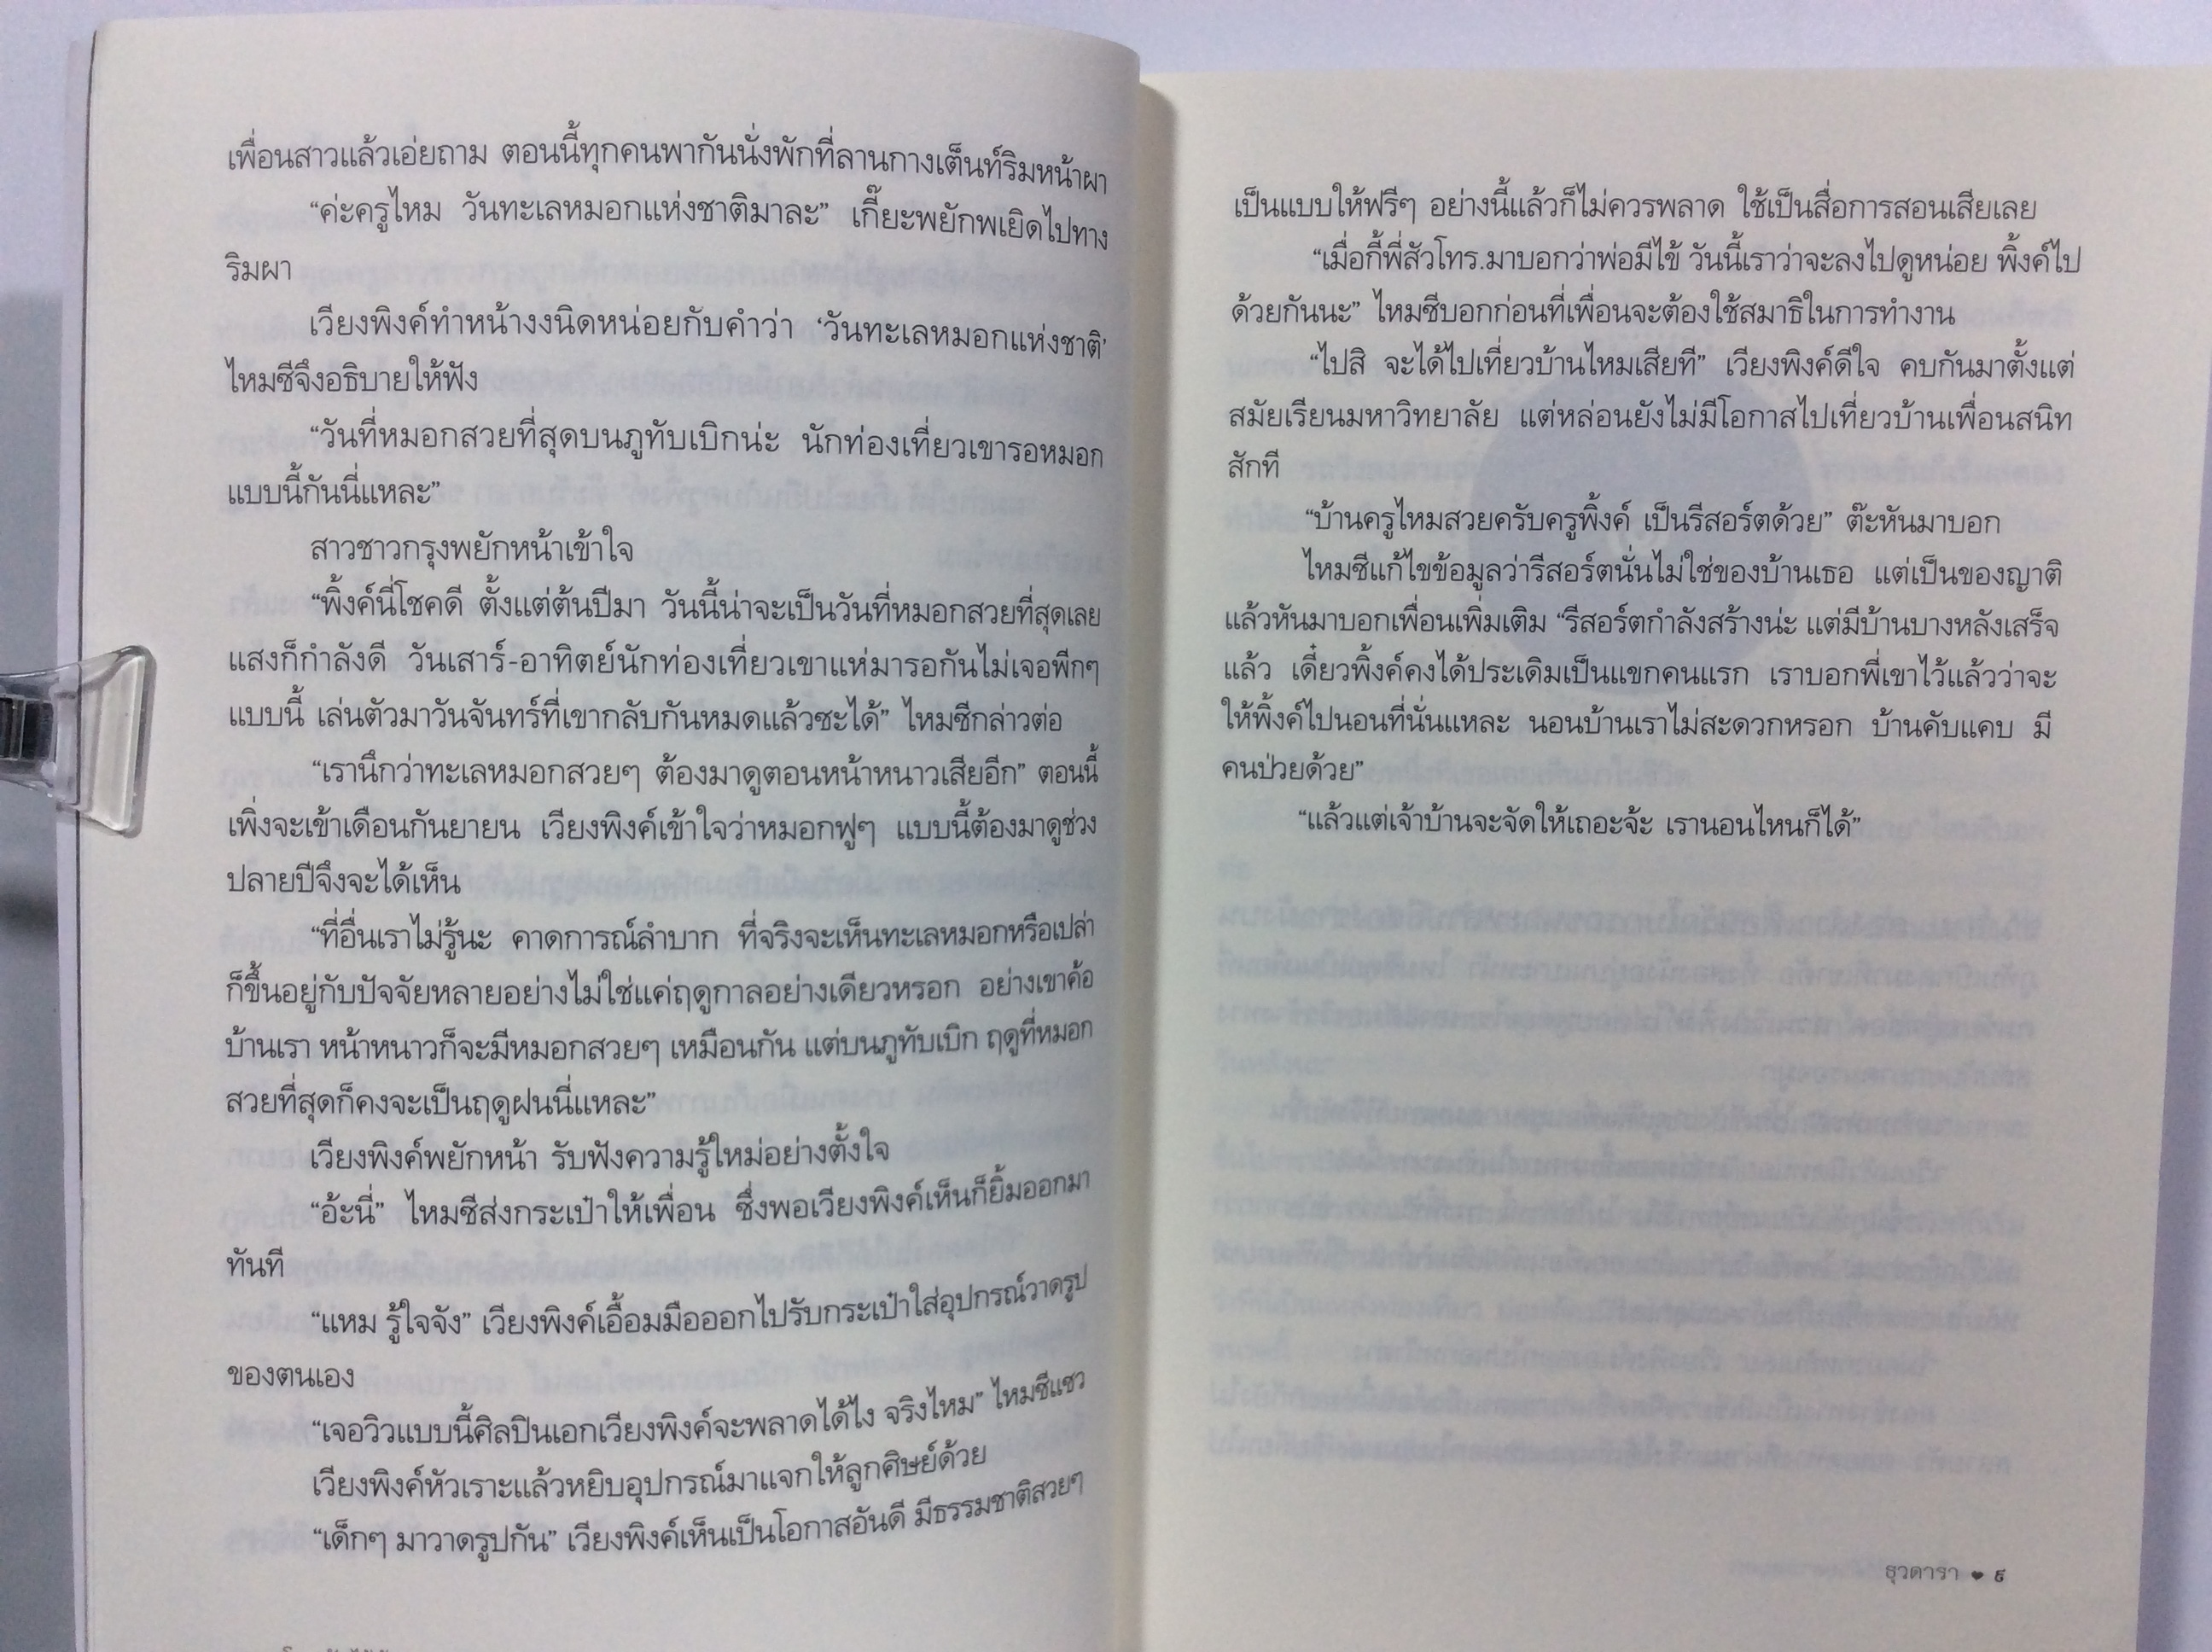 เพื่อนสาวแล้วเอ่ยถาม ตอนนี้ทุกคนพากันนั่งพักที่ลานกางเต็นท์ริมหน้าผา
“ค่ะครูไหม วันทะเลหมอกแห่งชาติมาละ” เกี๊ยะพยักพเยิดไปทาง
ริมผา
เวียงพิงค์ทำหน้างงนิดหน่อยกับคำว่า ‘วันทะเลหมอกแห่งชาติ’
ไหมซีจึงอธิบายให้ฟัง
“วันที่หมอกสวยที่สุดบนภูทับเบิกน่ะ นักท่องเที่ยวเขารอหมอก
แบบนี้กันนี่แหละ”
สาวชาวกรุงพยักหน้าเข้าใจ
“พิ้งค์นี่โชคดี ตั้งแต่ต้นปีมา วันนี้น่าจะเป็นวันที่หมอกสวยที่สุดเลย
แสงก็กำลังดี วันเสาร์-อาทิตย์นักท่องเที่ยวเขาแห่มารอกันไม่เจอพีกๆ
แบบนี้ เล่นตัวมาวันจันทร์ที่เขากลับกันหมดแล้วซะได้” ไหมซีกล่าวต่อ
“เรานึกว่าทะเลหมอกสวยๆ ต้องมาดูตอนหน้าหนาวเสียอีก” ตอนนี้
เพิ่งจะเข้าเดือนกันยายน เวียงพิงค์เข้าใจว่าหมอกฟูๆ แบบนี้ต้องมาดูช่วง
ปลายปีจึงจะได้เห็น
“ที่อื่นเราไม่รู้นะ คาดการณ์ลำบาก ที่จริงจะเห็นทะเลหมอกหรือเปล่า
ก็ขึ้นอยู่กับปัจจัยหลายอย่างไม่ใช่แค่ฤดูกาลอย่างเดียวหรอก อย่างเขาค้อ
บ้านเรา หน้าหนาวก็จะมีหมอกสวยๆ เหมือนกัน แต่บนภูทับเบิก ฤดูที่หมอก
สวยที่สุดก็คงจะเป็นฤดูฝนนี่แหละ”
เวียงพิงค์พยักหน้า รับฟังความรู้ใหม่อย่างตั้งใจ
“อ้ะนี่” ไหมซีส่งกระเป๋าให้เพื่อน ซึ่งพอเวียงพิงค์เห็นก็ยิ้มออกมา
ทันที
“แหม รู้ใจจัง” เวียงพิงค์เอื้อมมือออกไปรับกระเป๋าใส่อุปกรณ์วาดรูป
ของตนเอง
“เจอวิวแบบนี้ศิลปินเอกเวียงพิงค์จะพลาดได้ไง จริงไหม” ไหมซีแซว
เวียงพิงค์หัวเราะแล้วหยิบอุปกรณ์มาแจกให้ลูกศิษย์ด้วย
“เด็กๆ มาวาดรูปกัน” เวียงพิงค์เห็นเป็นโอกาสอันดี มีธรรมชาติสวยๆ
เป็นแบบให้ฟรีๆ อย่างนี้แล้วก็ไม่ควรพลาด ใช้เป็นสื่อการสอนเสียเลย
“เมื่อกี้พี่สัวโทร.มาบอกว่าพ่อมีไข้ วันนี้เราว่าจะลงไปดูหน่อย พิ้งค์ไป
ด้วยกันนะ” ไหมซีบอกก่อนที่เพื่อนจะต้องใช้สมาธิในการทำงาน
“ไปสิ จะได้ไปเที่ยวบ้านไหมเสียที” เวียงพิงค์ดีใจ คบกันมาตั้งแต่
สมัยเรียนมหาวิทยาลัย แต่หล่อนยังไม่มีโอกาสไปเที่ยวบ้านเพื่อนสนิท
สักที
“บ้านครูไหมสวยครับครูพิ้งค์ เป็นรีสอร์ตด้วย” ต๊ะหันมาบอก
ไหมซีแก้ไขข้อมูลว่ารีสอร์ตนั่นไม่ใช่ของบ้านเธอ แต่เป็นของญาติ
แล้วหันมาบอกเพื่อนเพิ่มเติม “รีสอร์ตกำลังสร้างน่ะ แต่มีบ้านบางหลังเสร็จ
แล้ว เดี๋ยวพิ้งค์คงได้ประเดิมเป็นแขกคนแรก เราบอกพี่เขาไว้แล้วว่าจะ
ให้พิ้งค์ไปนอนที่นั่นแหละ นอนบ้านเราไม่สะดวกหรอก บ้านคับแคบ มี
คนป่วยด้วย”
“แล้วแต่เจ้าบ้านจะจัดให้เถอะจ้ะ เรานอนไหนก็ได้”
ธุวดารา ❤ ๙